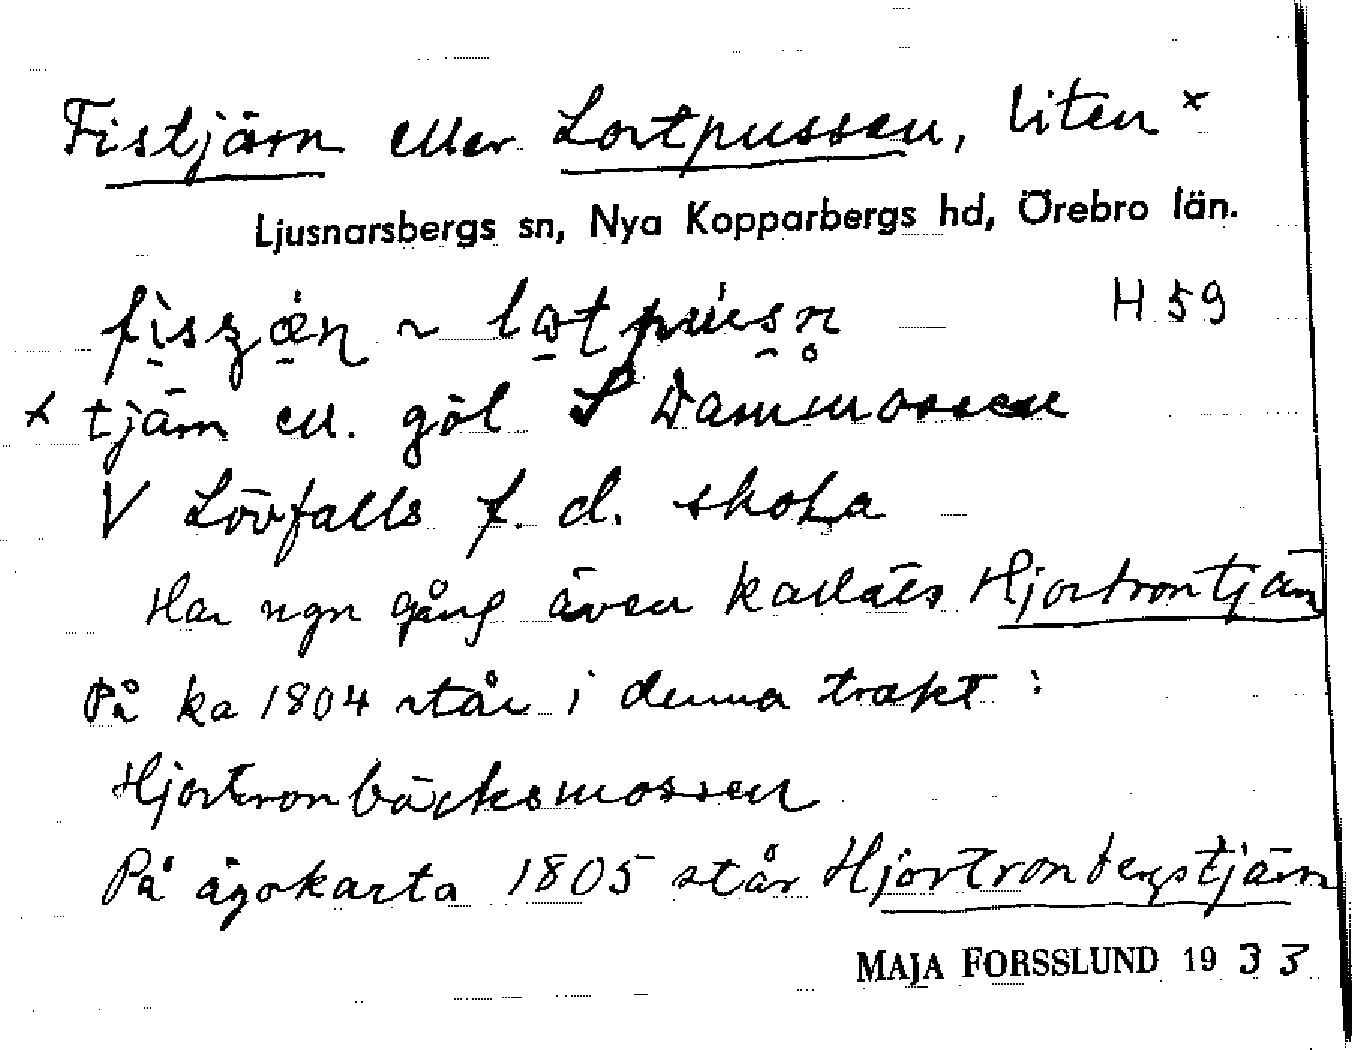 Fistjärn eller Lortpussen, liten x
Ljusnarsbergs sn, Nya Kopparbergs hd, Örebro län.
H 59
x tjärn ell. göl S Dammossen
V Lövfalls f. d. skola
Har ngn gång även kallats Hjortrontjärn
På ka 1804 står i denna trakt :
Hjortronbäcksmossen
På ägokarta 1805 står Hjortronbergstjärn
MAJA FORSSLUND 1933